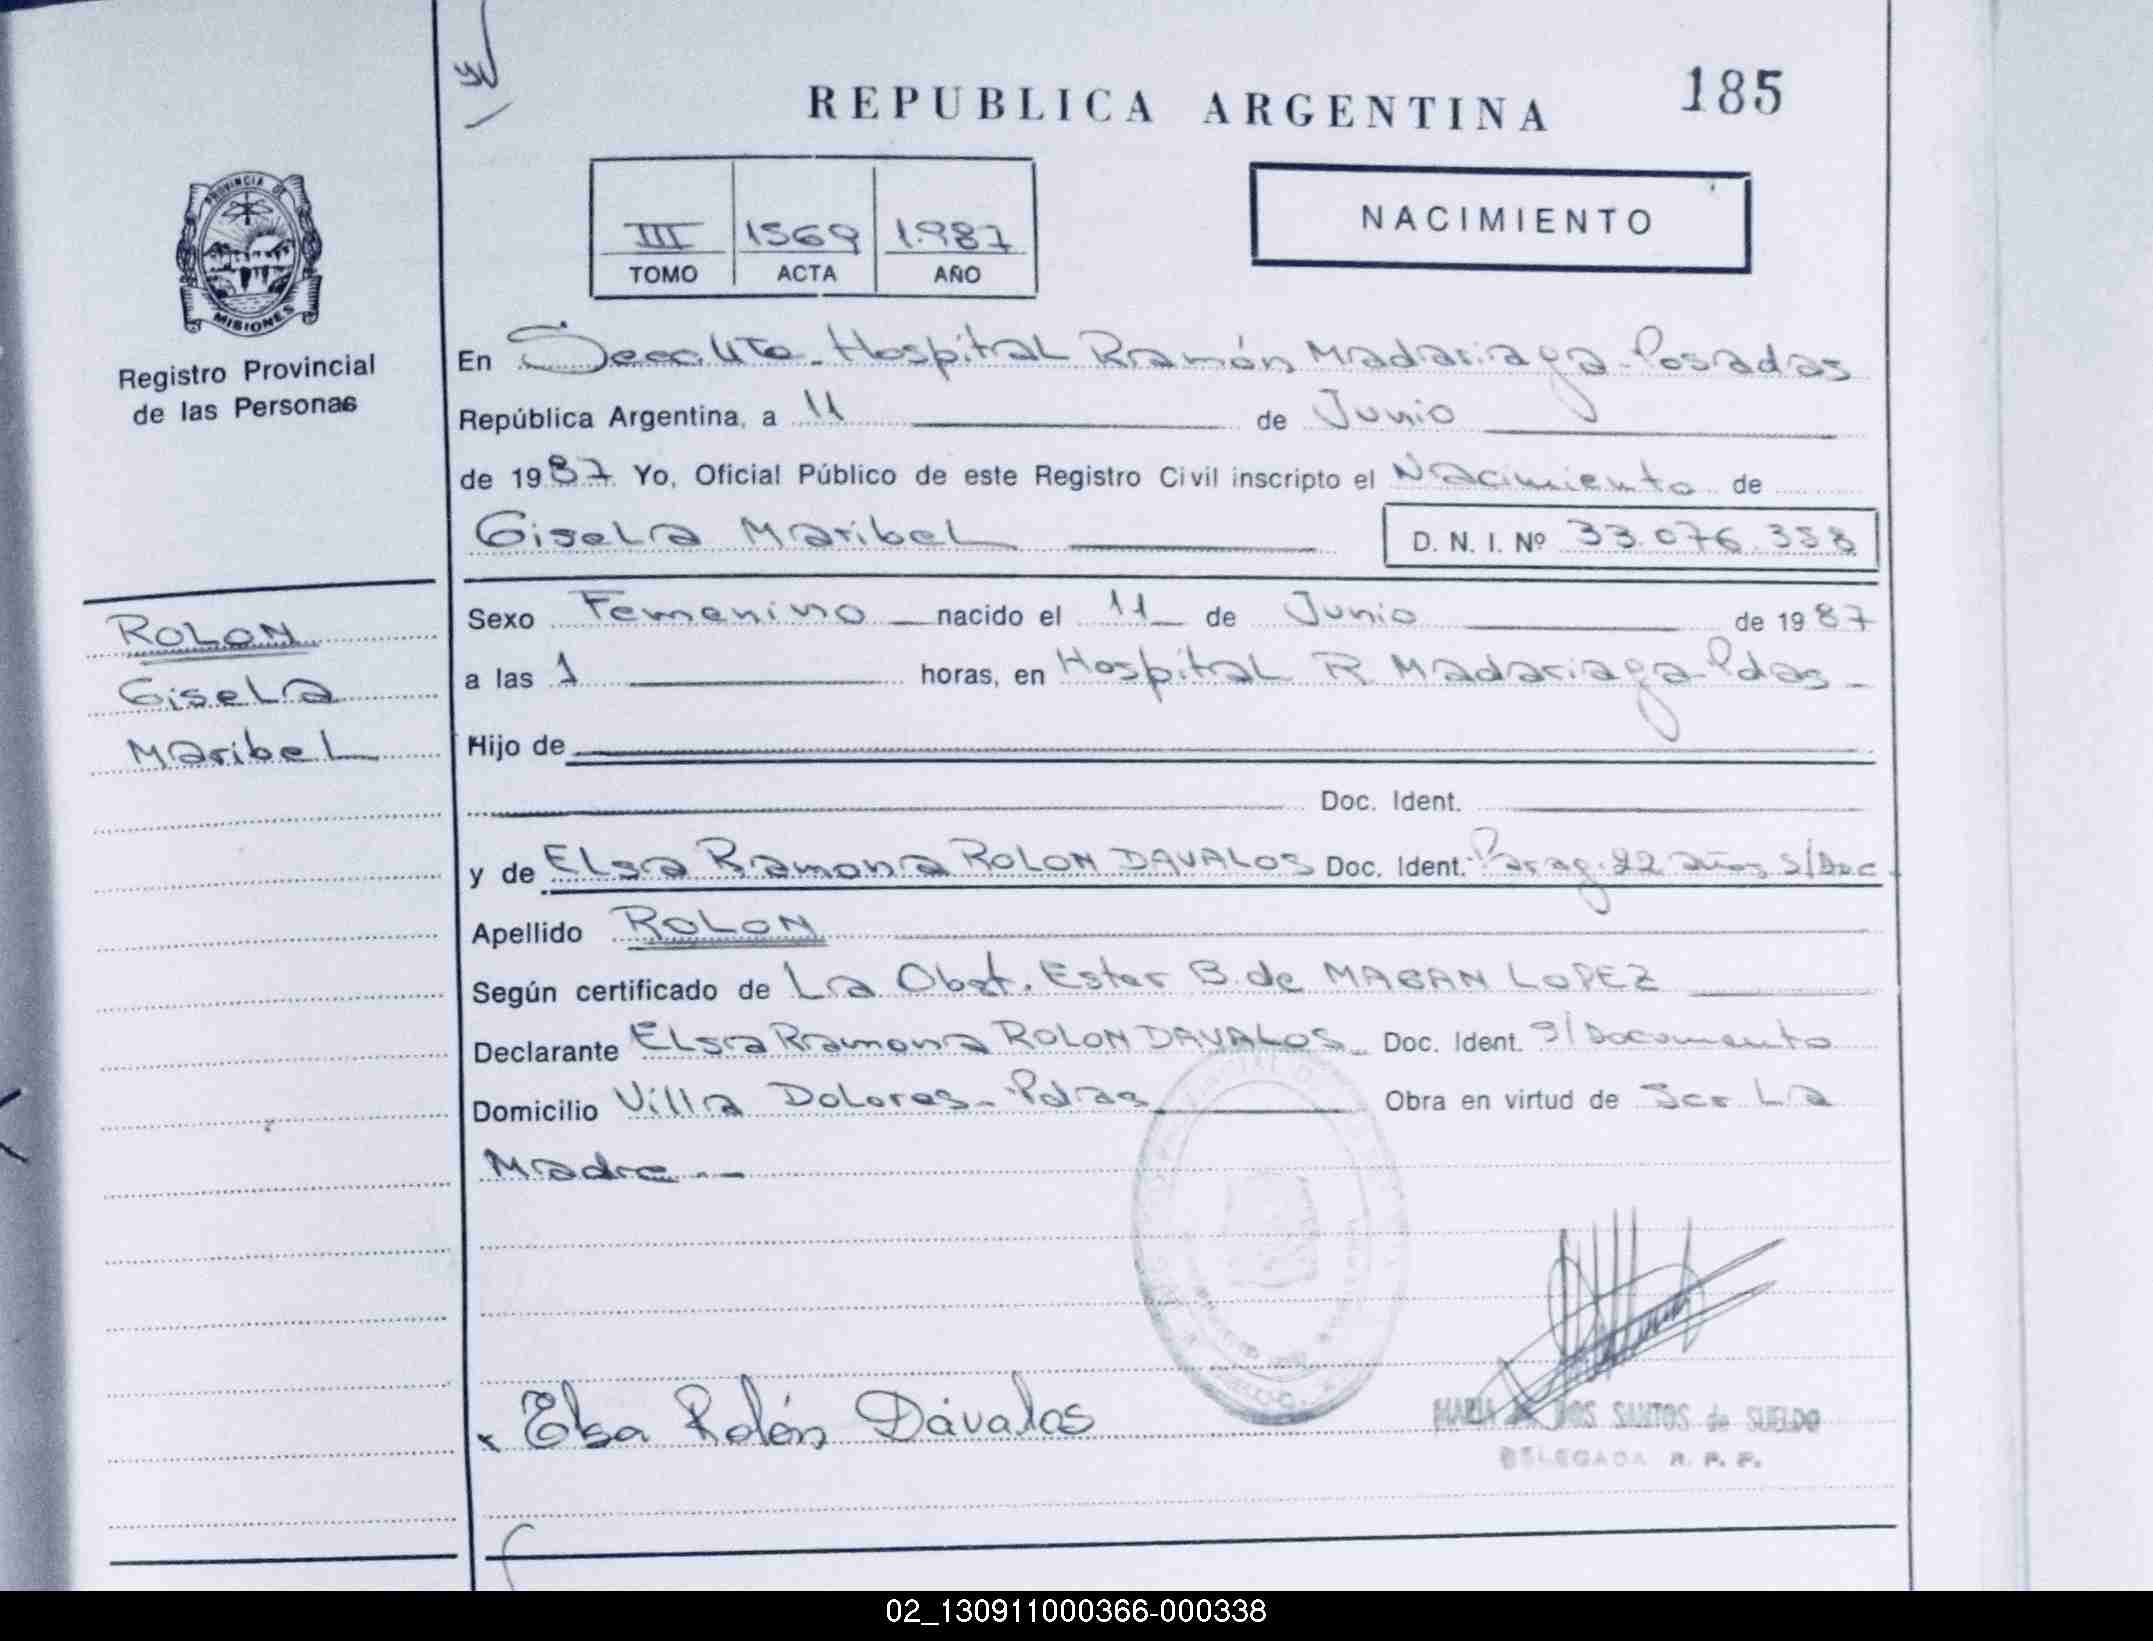 185
REPUBLICA ARGENTINA
PROVINCIA DE
MISIONES
Registro Provincial
de las Personas
III 1569 1.987
TOMO ACTA AÑO
NACIMIENTO
En Secc. Uta - Hospital Ramón Madariaga - Posadas
República Argentina, a 11 de Junio
de 1987 Yo, Oficial Público de este Registro Civil inscripto el Nacimiento de
Gisela Maribel D. N. I. Nº 33.076.358
ROLON
Gisela
Maribel
Sexo Femenino nacido el 11 de Junio de 1987
a las 1 horas, en Hospital R. Madariaga - Pdas -
Hijo de
Doc. Ident.
y de Elsa Ramona ROLON DAVALOS Doc. Ident. Parag. 22 años S/Doc.
Apellido ROLON
Según certificado de La Obst. Ester B. de MABAN LOPEZ
Declarante Elsa Ramona ROLON DAVALOS - Doc. Ident. S/Documento
Domicilio Villa Dolores - Pdas Obra en virtud de Ser La
Madre --
x Elsa Rolón Dávalos
DOS SANTOS de SUELDO
DELEGADA R. P. P.
02_130911000366-000338